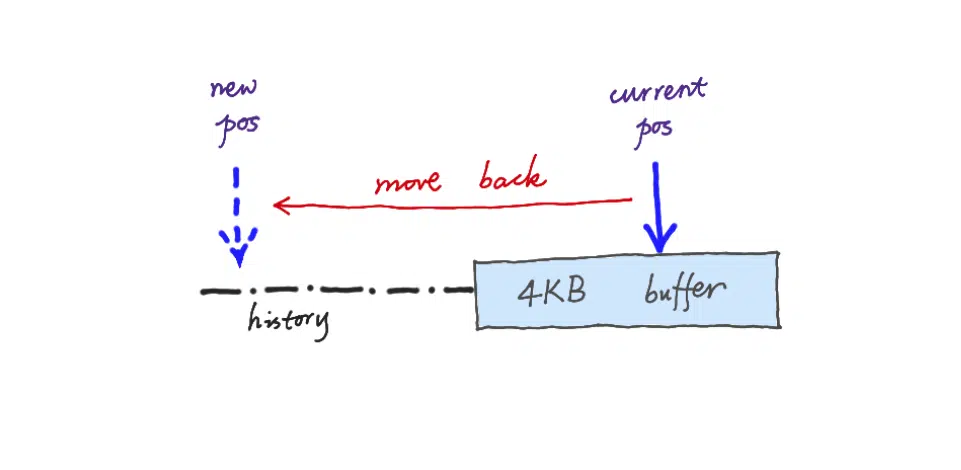 new
pos
current
pos
move back
4KB buffer
history